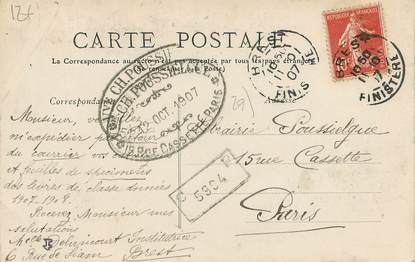 12f
CARTE POSTALE
La Correspondance au recto n'est pas acceptée par tous les pays étrangers
(Se renseigner à la Poste)
Correspondance
Adresse
BREST
07
FINISTERE
BREST
FINISTÈRE
Vve CH. POUSSIELGUE
12 OCT. 1907
15 RUE CASSETTE PARIS
29
5934
Monsieur, Veuillez
m'expédier par retour
du courrier vos
feuilles de specimens
des livres de classe données
1907-1908.
Recevez Monsieur mes
salutations
Institutrice
6 Rue de Siam Brest
Librairie Poussielgue
15 rue Cassette
Paris